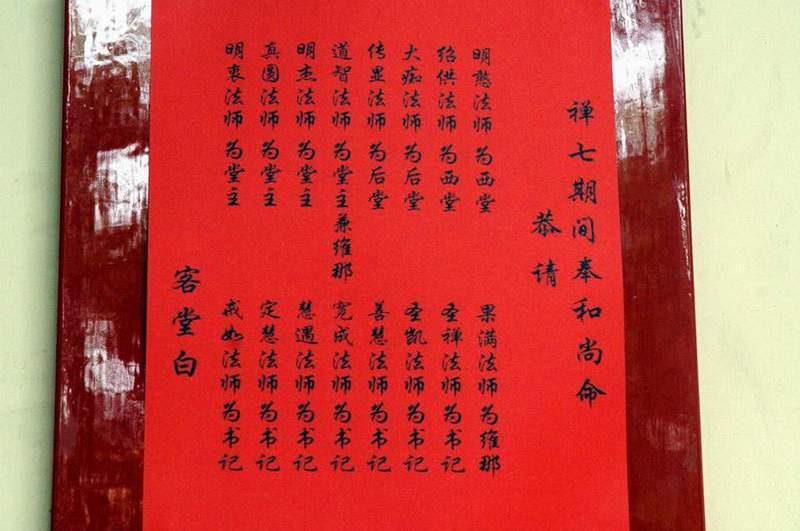 禅七期间奉和尚命
恭请
明憨法师为西堂
绍供法师为西堂
大痴法师为后堂
传显法师为后堂
道智法师为堂主兼维那
明杰法师为堂主
真圆法师为堂主
明衷法师为堂主
果满法师为维那
圣禅法师为书记
圣凯法师为书记
善慧法师为书记
宽成法师为书记
慧遇法师为书记
定慧法师为书记
戒如法师为书记
客堂白